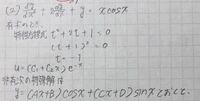 (2) d²y/dx² + 2 dy/dx + y = xcosx
特性方程式 t²+2t+1=0
(t+1)²=0
t=-1
u=(C₁+C₂x)e⁻ˣ
y=(Ax+B)cosx+(Cx+D)sinxとおくと、